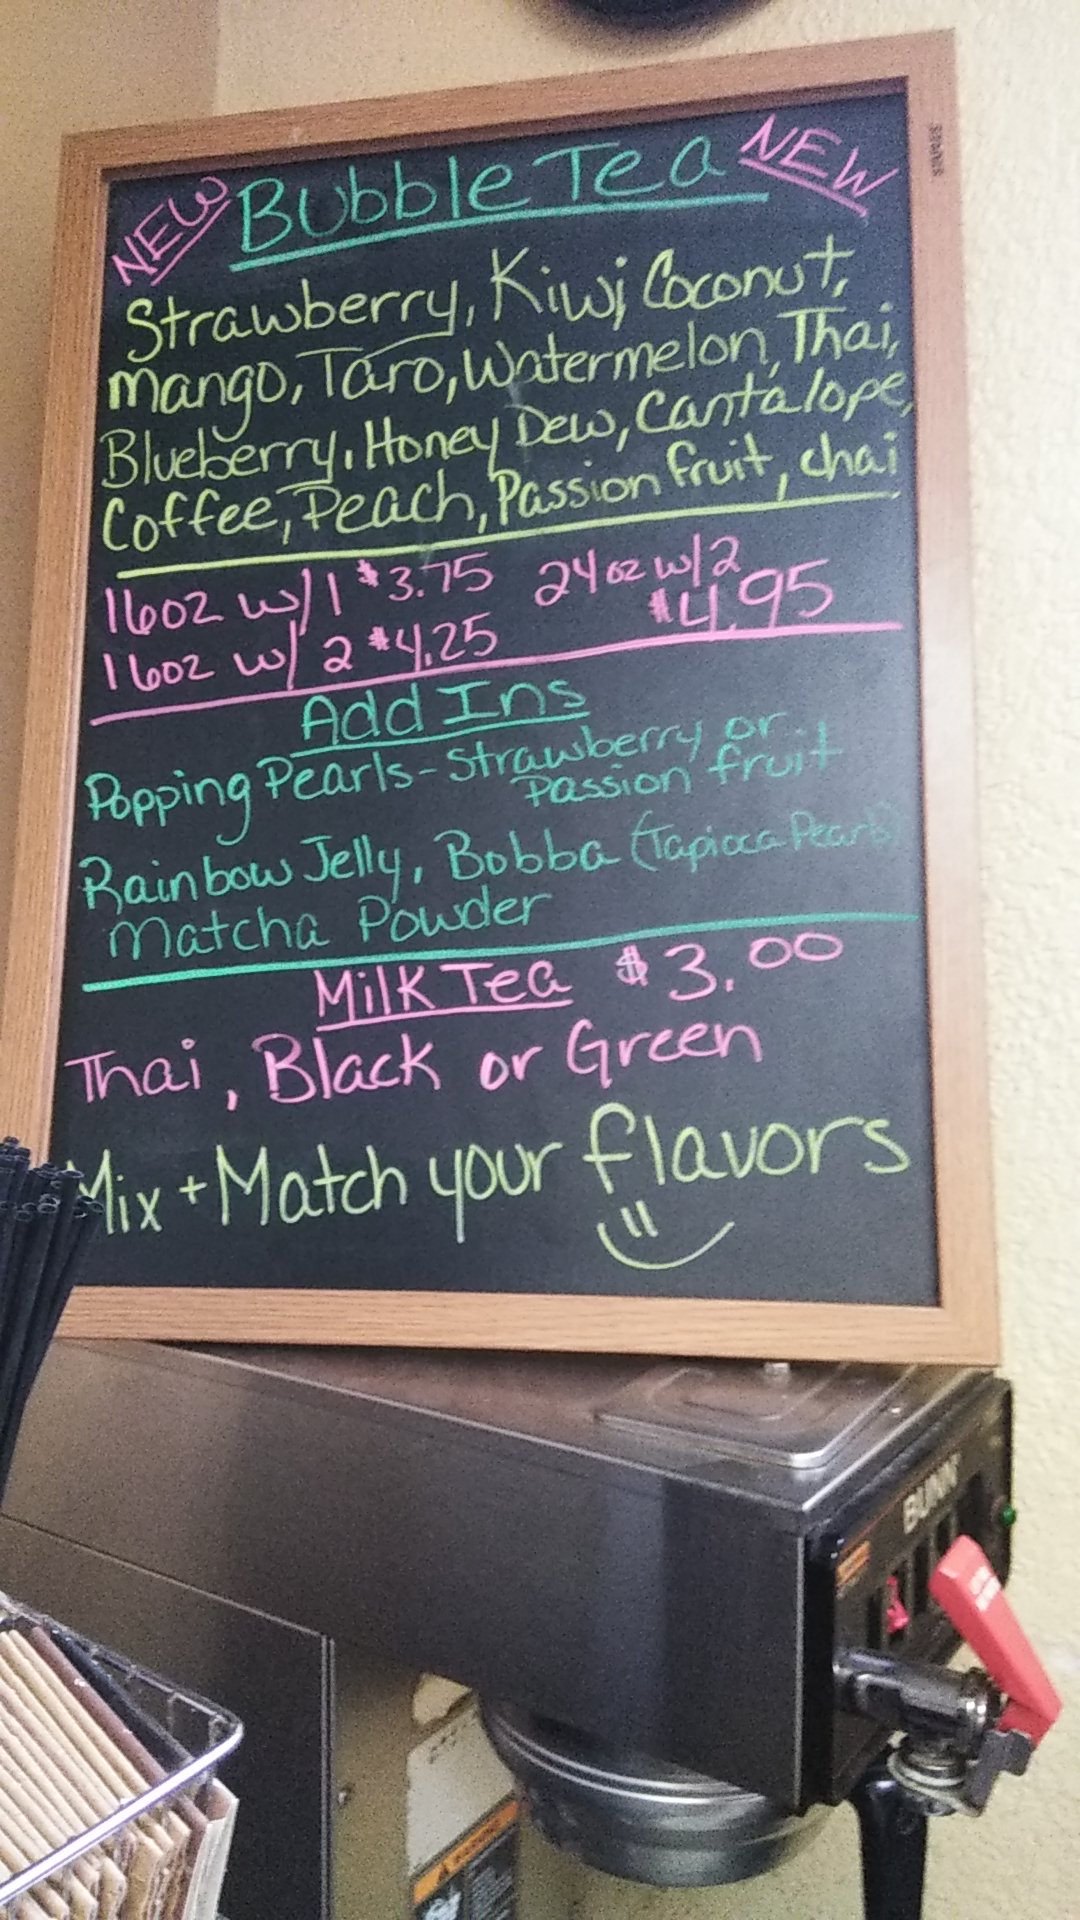 NEW Bubble Tea NEW
Strawberry, Kiwi, Coconut,
Mango, Taro, Watermelon, Thai,
Blueberry, Honey Dew, Cantalope,
Coffee, Peach, Passion fruit, chai
16oz w/1 $3.75 24oz w/2
16oz w/ 2 $4.25 $4.95
Add Ins
Popping Pearls - Strawberry or
Passion fruit
Rainbow Jelly, Bobba (Tapioca Pearls)
Matcha Powder
Milk Tea $3.00
Thai, Black or Green
Mix + Match your flavors
BUNN